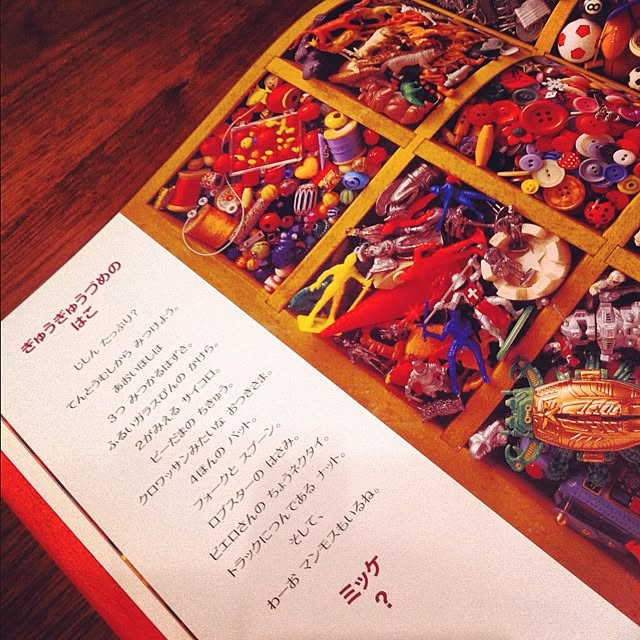 ぎゅうぎゅうづめの
はこ
じしん たっぷり?
てんとうむしから みつけよう。
あおいほしは
3つ みつかるはずさ。
ふるいガラスびんの かけら。
2がみえる サイコロ。
ビーだまの ちきゅう。
クロワッサンみたいな おつきさま。
4ほんの バット。
フォークと スプーン。
ロブスターの はさみ。
ピエロさんの ちょうネクタイ。
トラックにつんである ナット。
そして、
わーお マンモスもいるね。
ミッケ
?
8